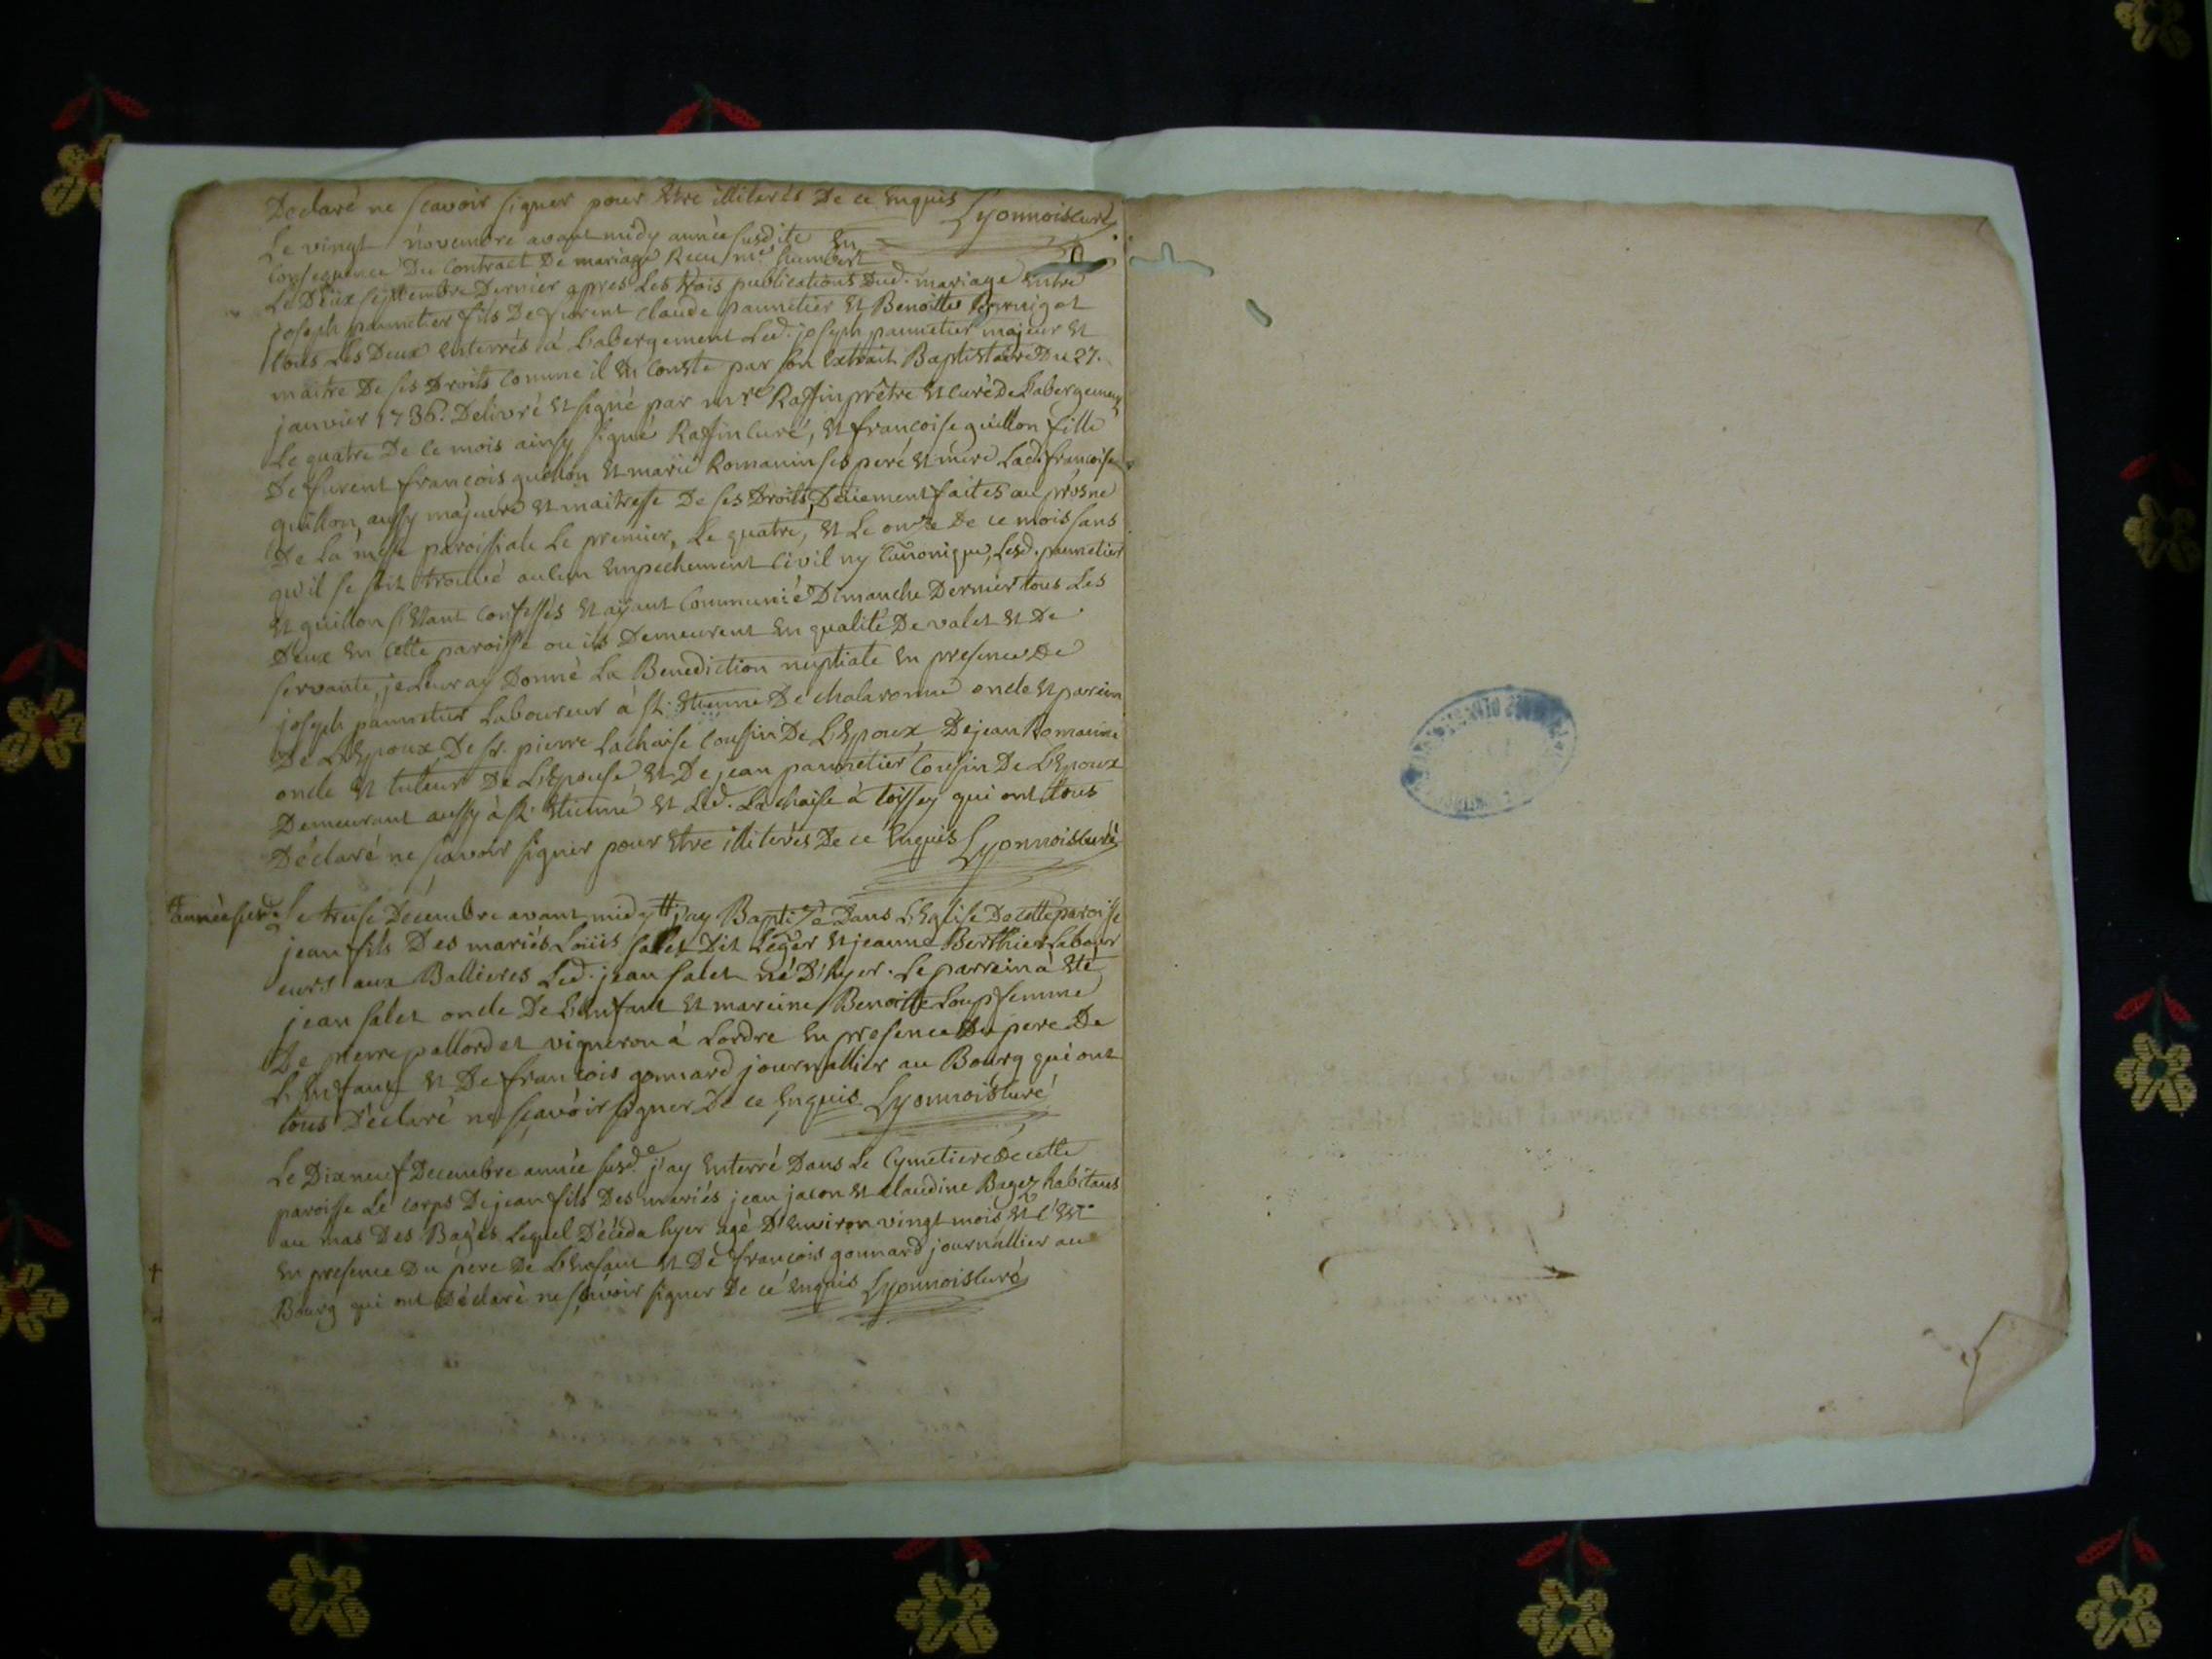 Declaré ne scavoir signer pour Etre illiterés De ce Enquis Lyonnois curé
Le vingt novembre avant midy année susdite En
consequence Du Contract De mariage Recu me. humbert
Le Deux septembre Dernier apres Les trois publications Dud. mariage Entre
joseph pannetier fils De furent claude pannetier Et Benoitte
tous Les Deux Enterrés à L'abergement Led. joseph pannetier majeur Et
maitre De ses Droits comme il En Conste par son Extrait Baptistaire Du 27.
janvier 1736. Delivré Et signé par mre. Raffin prêtre Et curé De L'abergement
Le quatre De ce mois ainsy signé Raffin curé, Et francoise guillon fille
De furent francois guillon Et marie Romanin ses peré Et mere Lad. francoise
guillon, aussy majeure Et maitresse De ses Droits, Deüement faites au prosne
De La messe paroissiale Le premier, Le quatre, Et Le onze De ce mois sans
qu'il se soit trouvé aucun Empechement Civil ny Canonique, Lesd. pannetier
Et guillon s'Etant confessés Et ayant Communié Dimanche Dernier tous Les
Deux En cette paroisse ou ils Demeurent En qualité De valet Et De
servante, je Leur ay Donné La Benediction nuptiale En presence De
joseph pannetier Laboureur à st. Etienne De chalaronne oncle Et parein
De L'Epoux, De sr. pierre Lachaise Cousin De L'Epoux De jean Romanin
oncle Et tuteur De L'Epouse Et De jean pannetier Cousin De L'Epoux
Demeurant aussy à st. Etienne Et Led. Lachaise à toissey qui ont tous
Déclaré ne scavoir signer pour Etre illiterés De ce Enquis Lyonnois curé
# année susd.e Le treise Decembre avant midy # j'ay Baptizé Dans L'Eglise De cette paroisse
jean fils Des mariés Loüis salet Dit Leger Et jeanne Berthier Labour
eurs aux Ballieres Led. jean salet né D'hyer. Le parrein a Eté
jean salet oncle De L'Enfant Et mareine Benoitte Loup femme
De pierre pallordet vigneron à Lordre En presence Du pere De
L'Enfant Et De francois gonnard journallier au Bourg qui ont
tous Déclaré ne scavoir signer De ce Enquis Lyonnois curé
Le Dixneuf Decembre année susd.e j'ay Enterré Dans Le Cymetiere De cette
paroisse Le corps De jean fils Des mariés jean jacon Et claudine Bagez habitans
au mas Des Bagés Lequel Décéda hyer agé D'Environ vingt mois Et c'Est
En presence Du pére De L'Enfant Et De francois gonnard journallier au
Bourg qui ont Déclaré ne scavoir signer De ce Enquis Lyonnois curé